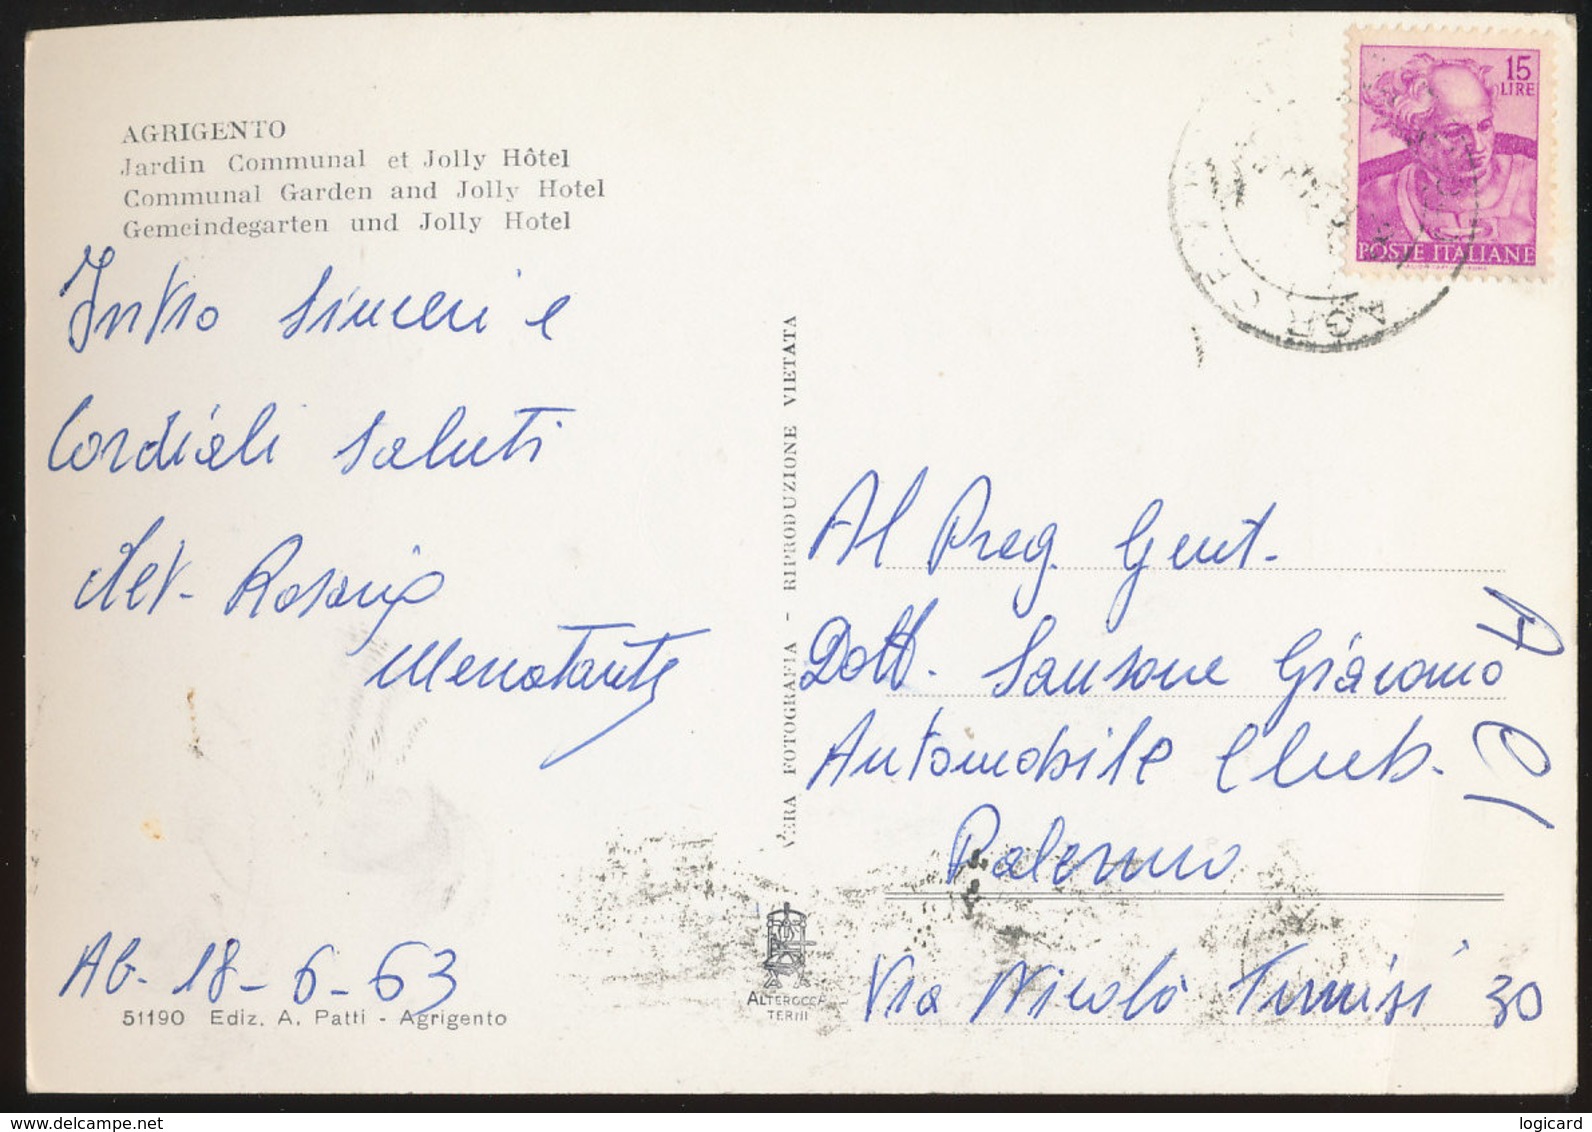 AGRIGENTO
Jardin Communal et Jolly Hôtel
Communal Garden and Jolly Hotel
Gemeindegarten und Jolly Hotel
sinceri e
Cordiali saluti
Rosario
Ag. 18-6-63
51190 Ediz. A. Patti - Agrigento
VERA FOTOGRAFIA - RIPRODUZIONE VIETATA
ALTEROCCA
TERNI
15
LIRE
POSTE ITALIANE
Al Preg. Gent.
Dott. Sansone Giacomo
Automobile Club.
Palermo
Via Nicolò Turrisi 30
logicard